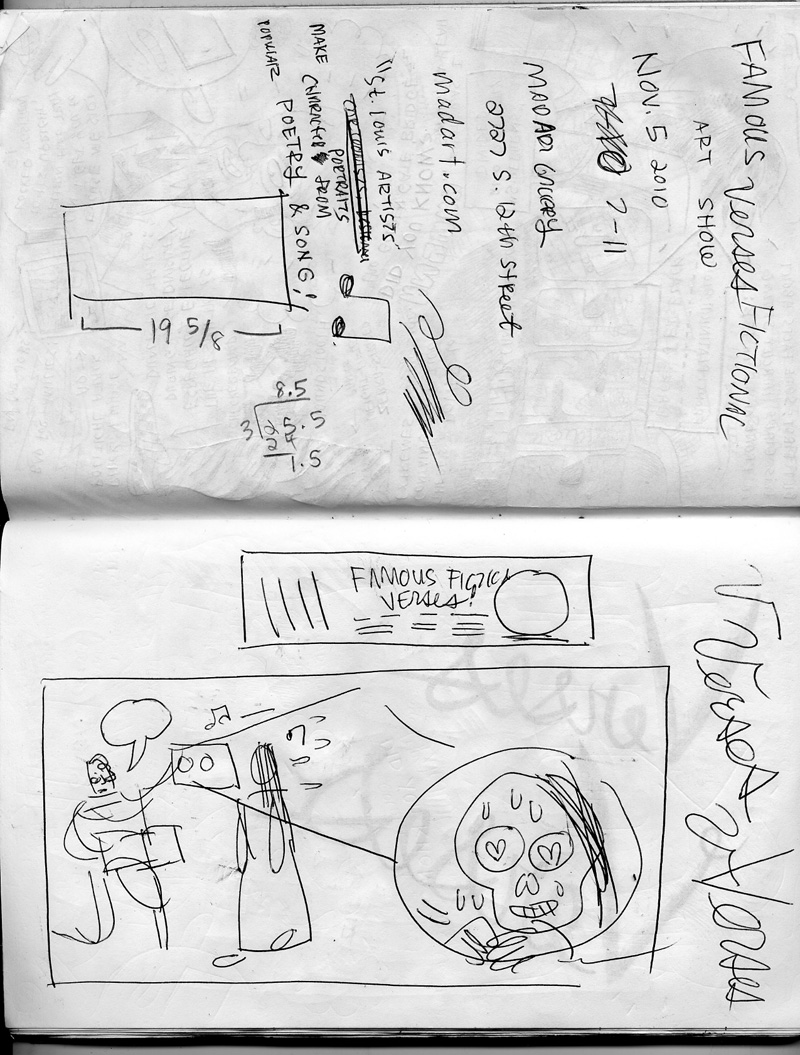 FAMOUS VERSES FICTIONAL
ART SHOW
NOV. 5 2010
7-11
MAD ART GALLERY
2727 S. 12th Street
madart.com
"St. Louis ARTISTS
PORTRAITS
MAKE CHARACTER FROM
POPULAR POETRY & SONG!
19 5/8
8.5
3 25.5
25
1.5
FAMOUS FICTION
VERSES!
V Verses
Verses